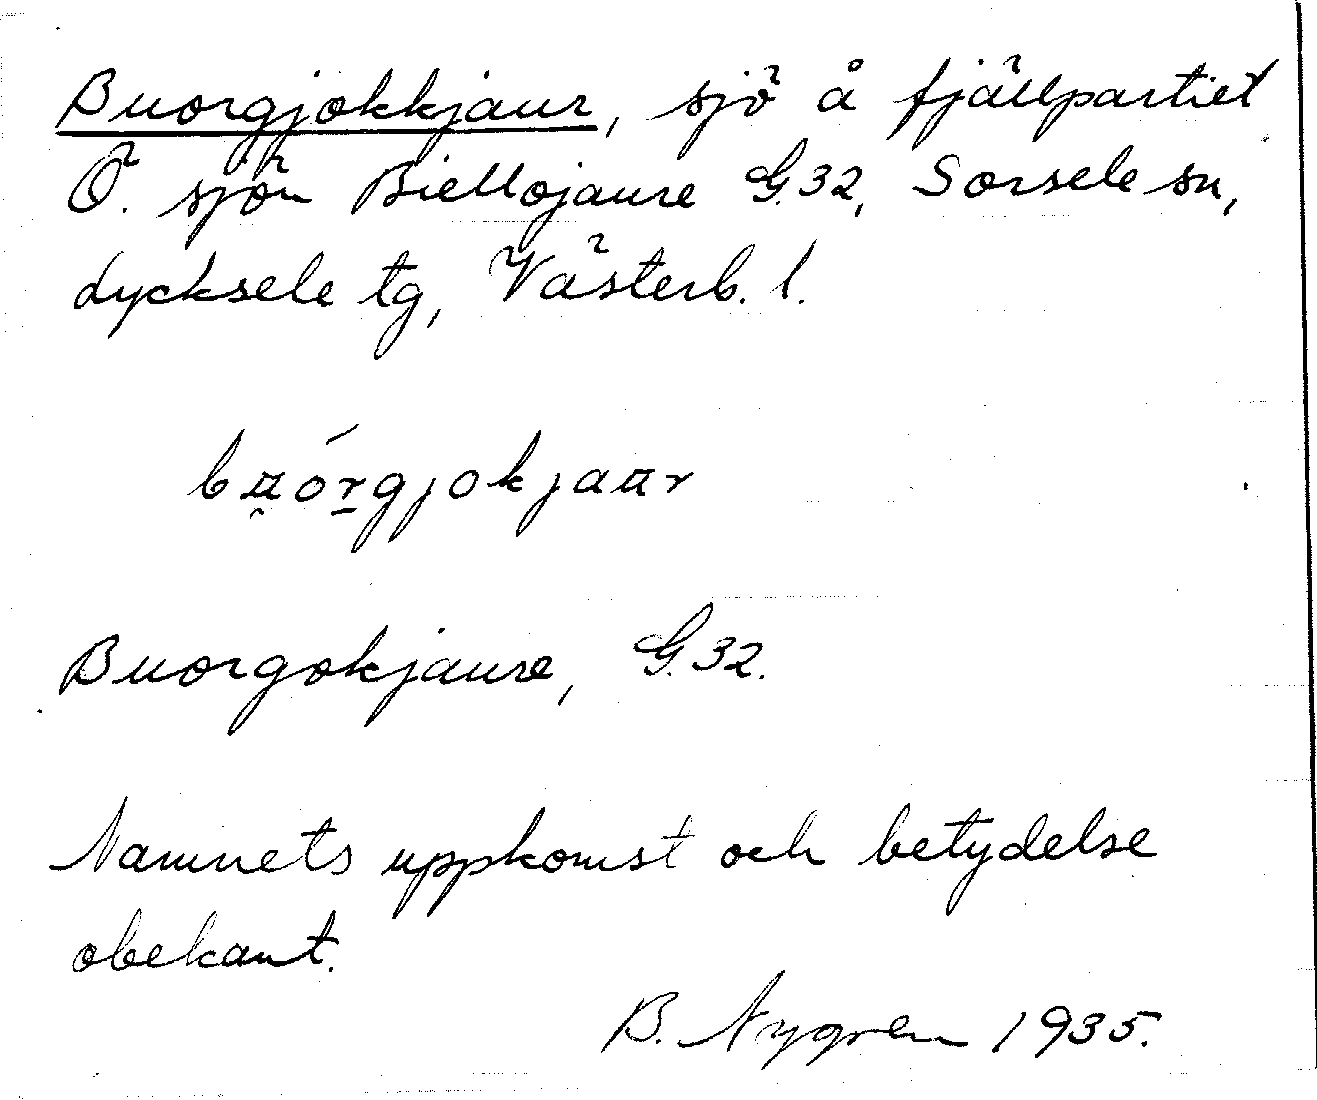 Buorgjokkjaur, sjö å fjällpartiet
Ö. sjön Biellojaure G.32, Sorsele sn,
Lycksele tg, Västerb. l.
Buorgokjaure, G.32.
Namnets uppkomst och betydelse
obekant.
B. Nygren 1935.